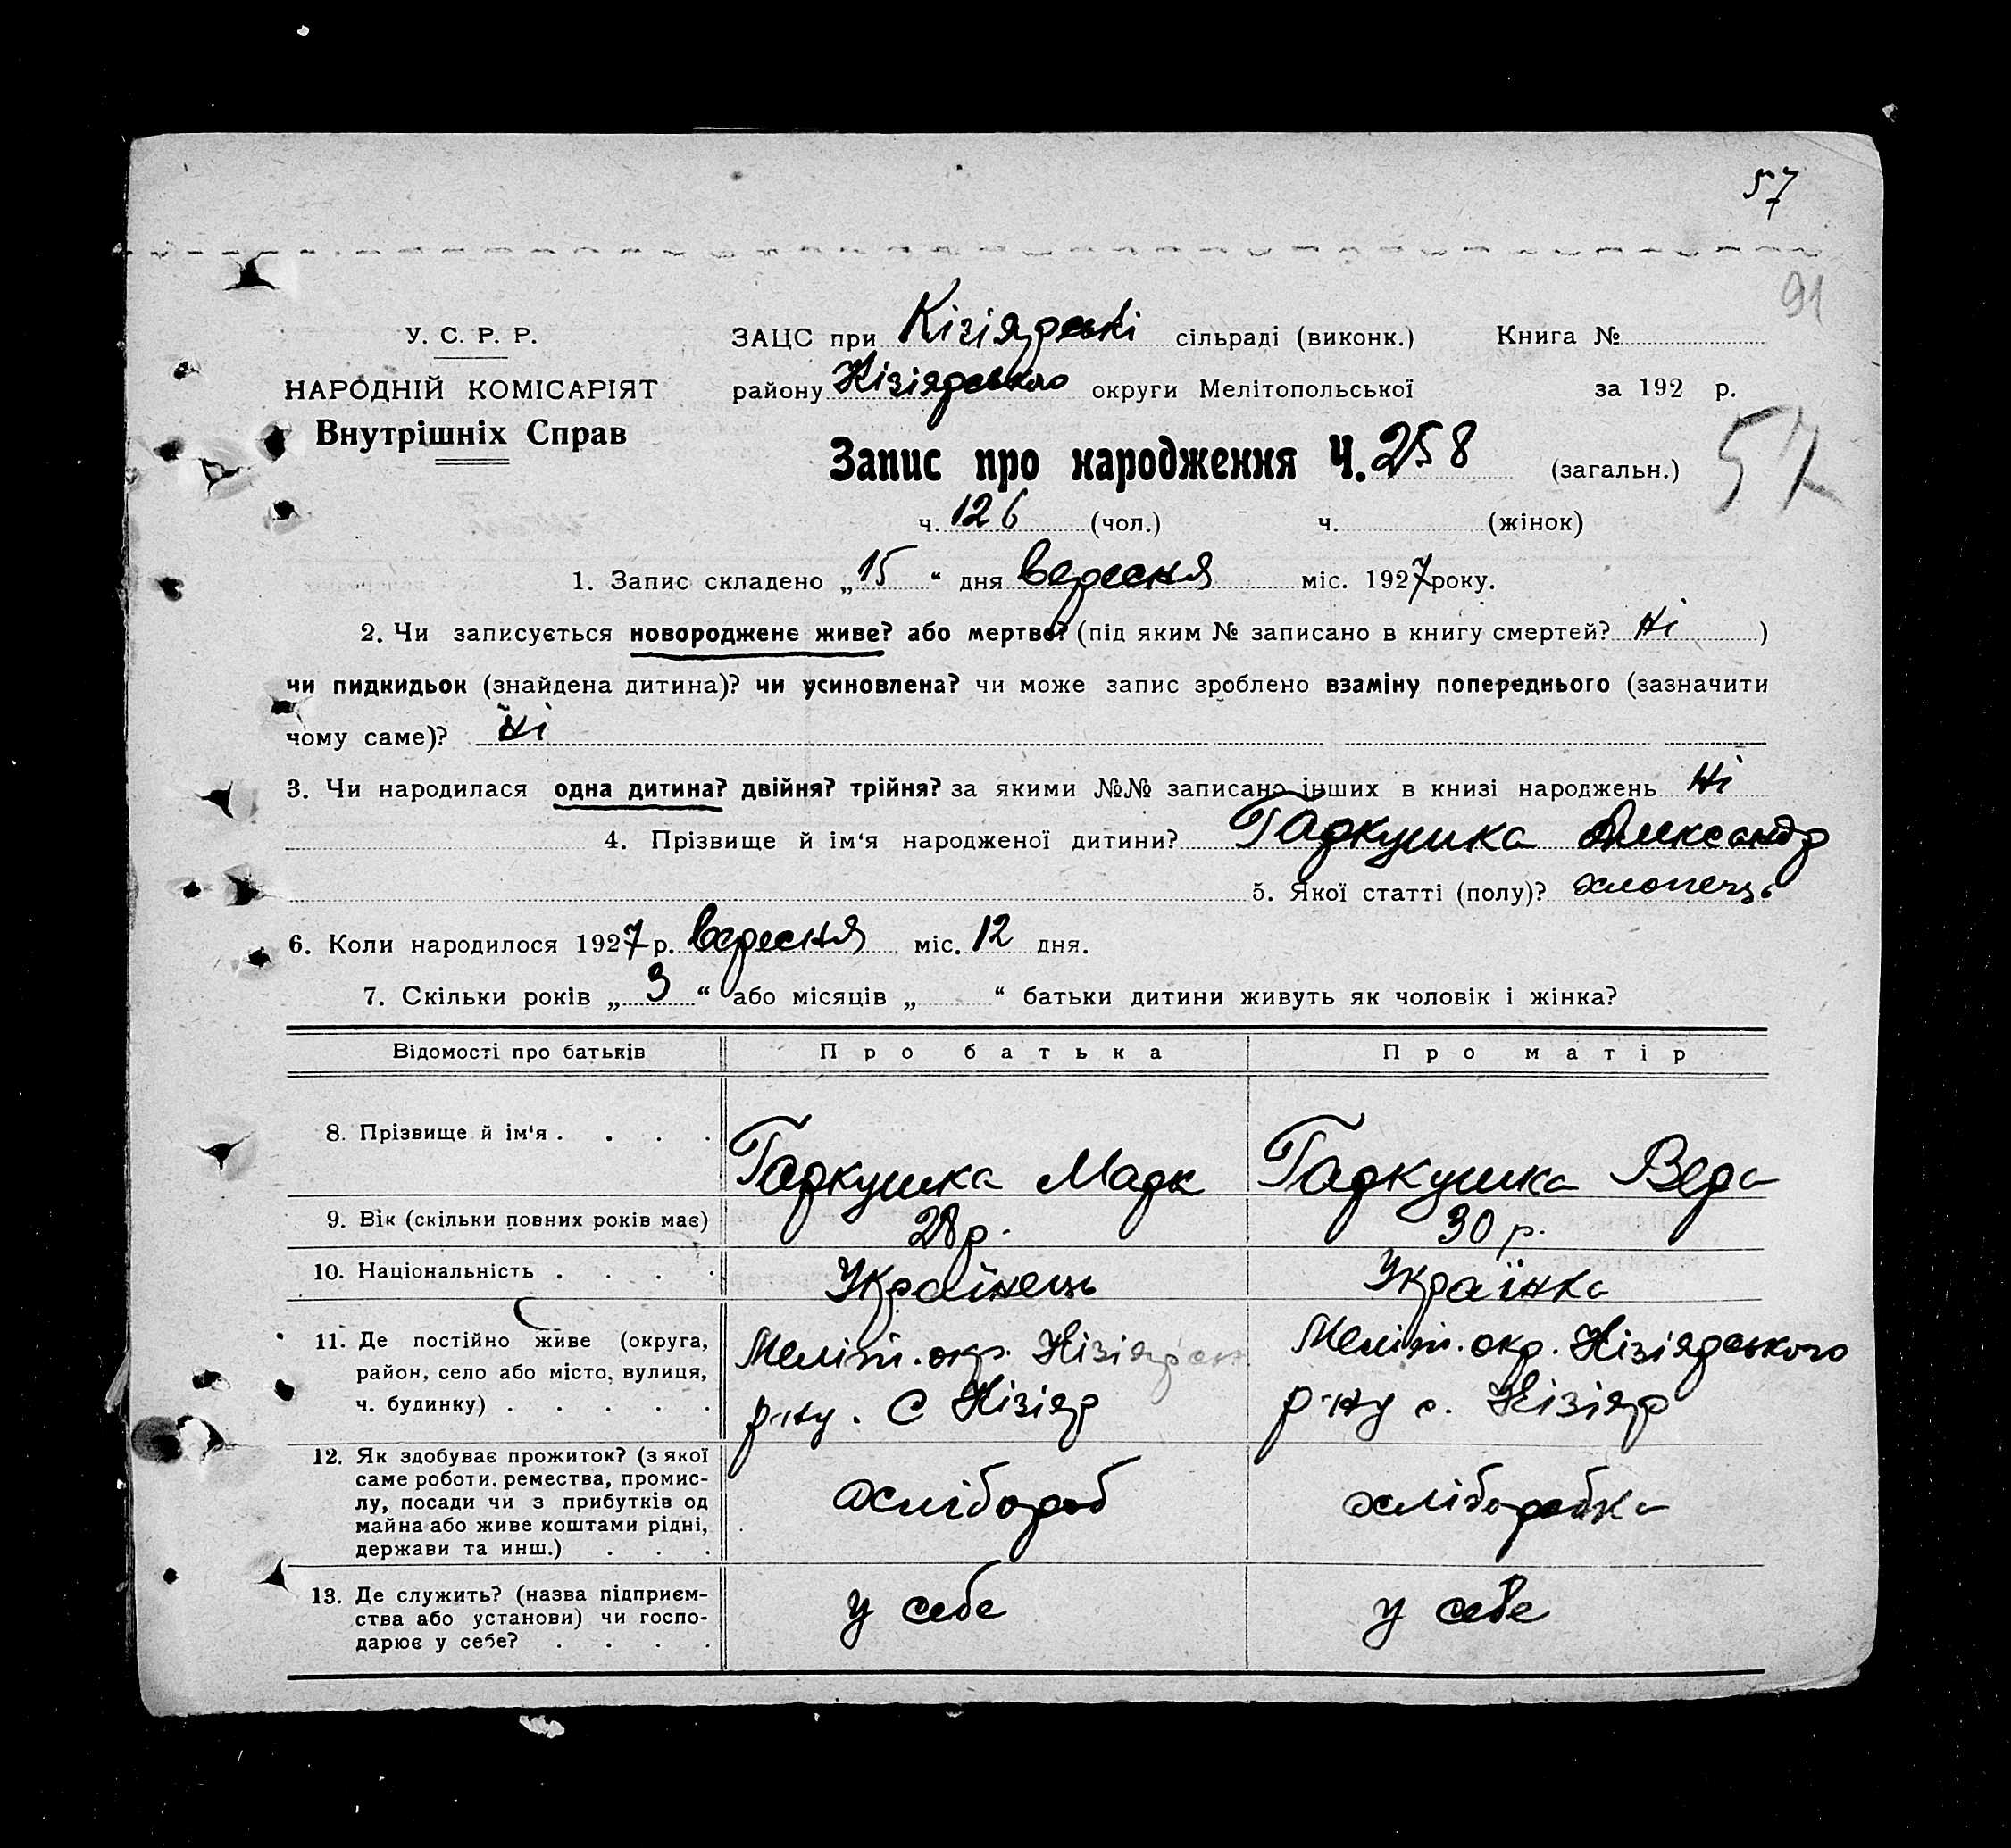 57
91
У. С. Р. Р.
НАРОДНІЙ КОМІСАРІЯТ
Внутрішніх Справ
ЗАЦС при Кізіярські сільраді (виконк.) Книга №
району Кізіярського округи Мелітопольської за 192 р.
57
Запис про народження Ч. 258 (загальн.)
ч. 126 (чол.) ч. (жінок)
1. Запис складено „15“ дня вересня міс. 1927 року.
2. Чи записується новороджене живе? або мертве? (під яким № записано в книгу смертей? Ні )
чи пидкидьок (знайдена дитина)? чи усиновлена? чи може запис зроблено взаміну попереднього (зазначити
чому саме)? Ні
3. Чи народилася одна дитина? двійня? трійня? за якими №№ записано інших в книзі народжень Ні
4. Прізвище й ім‘я народженої дитини? Гаркушка Александр
5. Якої статті (полу)? хлопець
6. Коли народилося 1927 р. вересня міс. 12 дня.
7. Скільки років „3“ або місяців „ “ батьки дитини живуть як чоловік і жінка?
Відомості про батьків Про батька Про матір
8. Прізвище й ім‘я . . . . Гаркушка Марк Гаркушка Вера
9. Вік (скільки повних років має) 28 р. 30 р.
10. Національність . . . . Українець Українка
11. Де постійно живе (округа,
район, село або місто, вулиця,
ч. будинку) . . . . .
Меліт. окр. Кізіярськ
р-ну. С Кізіяр
Меліт. окр. Кізіярського
р-ну с. Кізіяр
12. Як здобуває прожиток? (з якої
саме роботи, ремества, промис-
лу, посади чи з прибутків од
майна або живе коштами рідні,
держави та инш.) . . .
хлібороб хліборобка
13. Де служить? (назва підприєм-
ства або установи) чи госпо-
дарює у себе? . . . .
у себе у себе